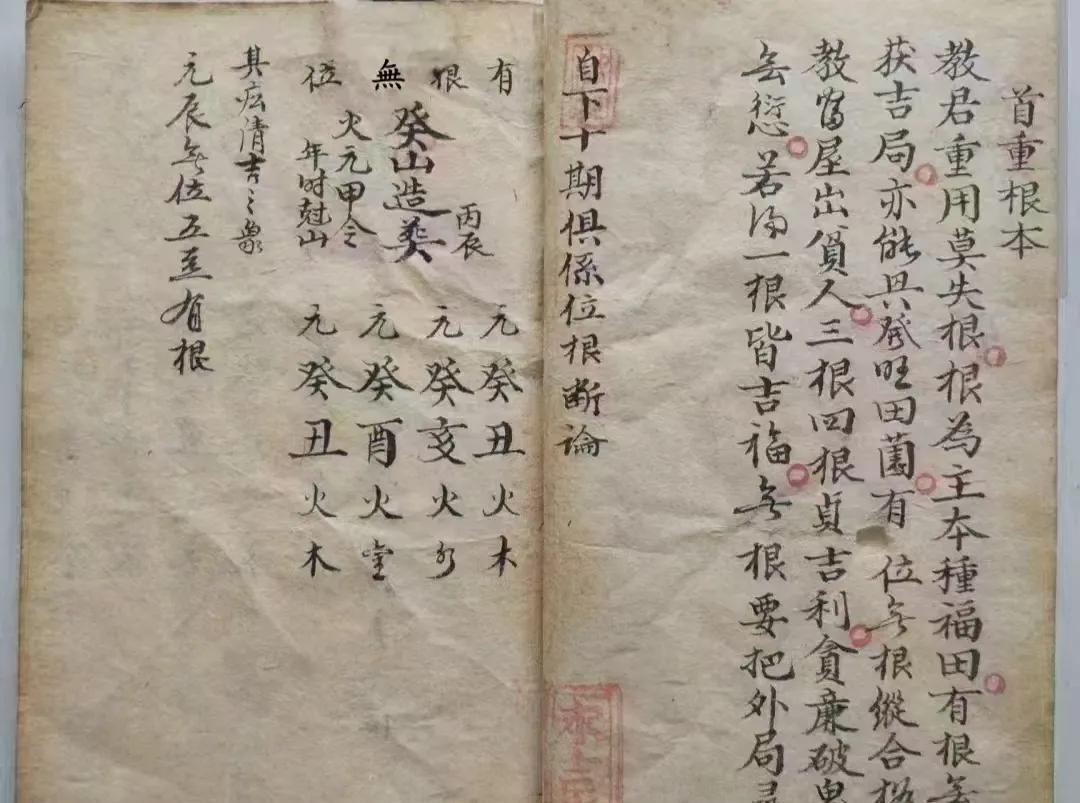 首重根本
教君重用莫失根根為主本種福田有根無
获吉局亦能興發旺田園有位無根縱合格
教富屋出貧人三根四根貞吉利貪廉破
無愆若得一根皆吉福無根要把外局尋
自下十期俱係位根断論
有根無位
丙辰
癸山造葬
火元甲令
年时尅山
元癸丑火木
元癸亥火水
元癸酉火金
元癸丑火木
其応清吉之象
元辰無位五星有根